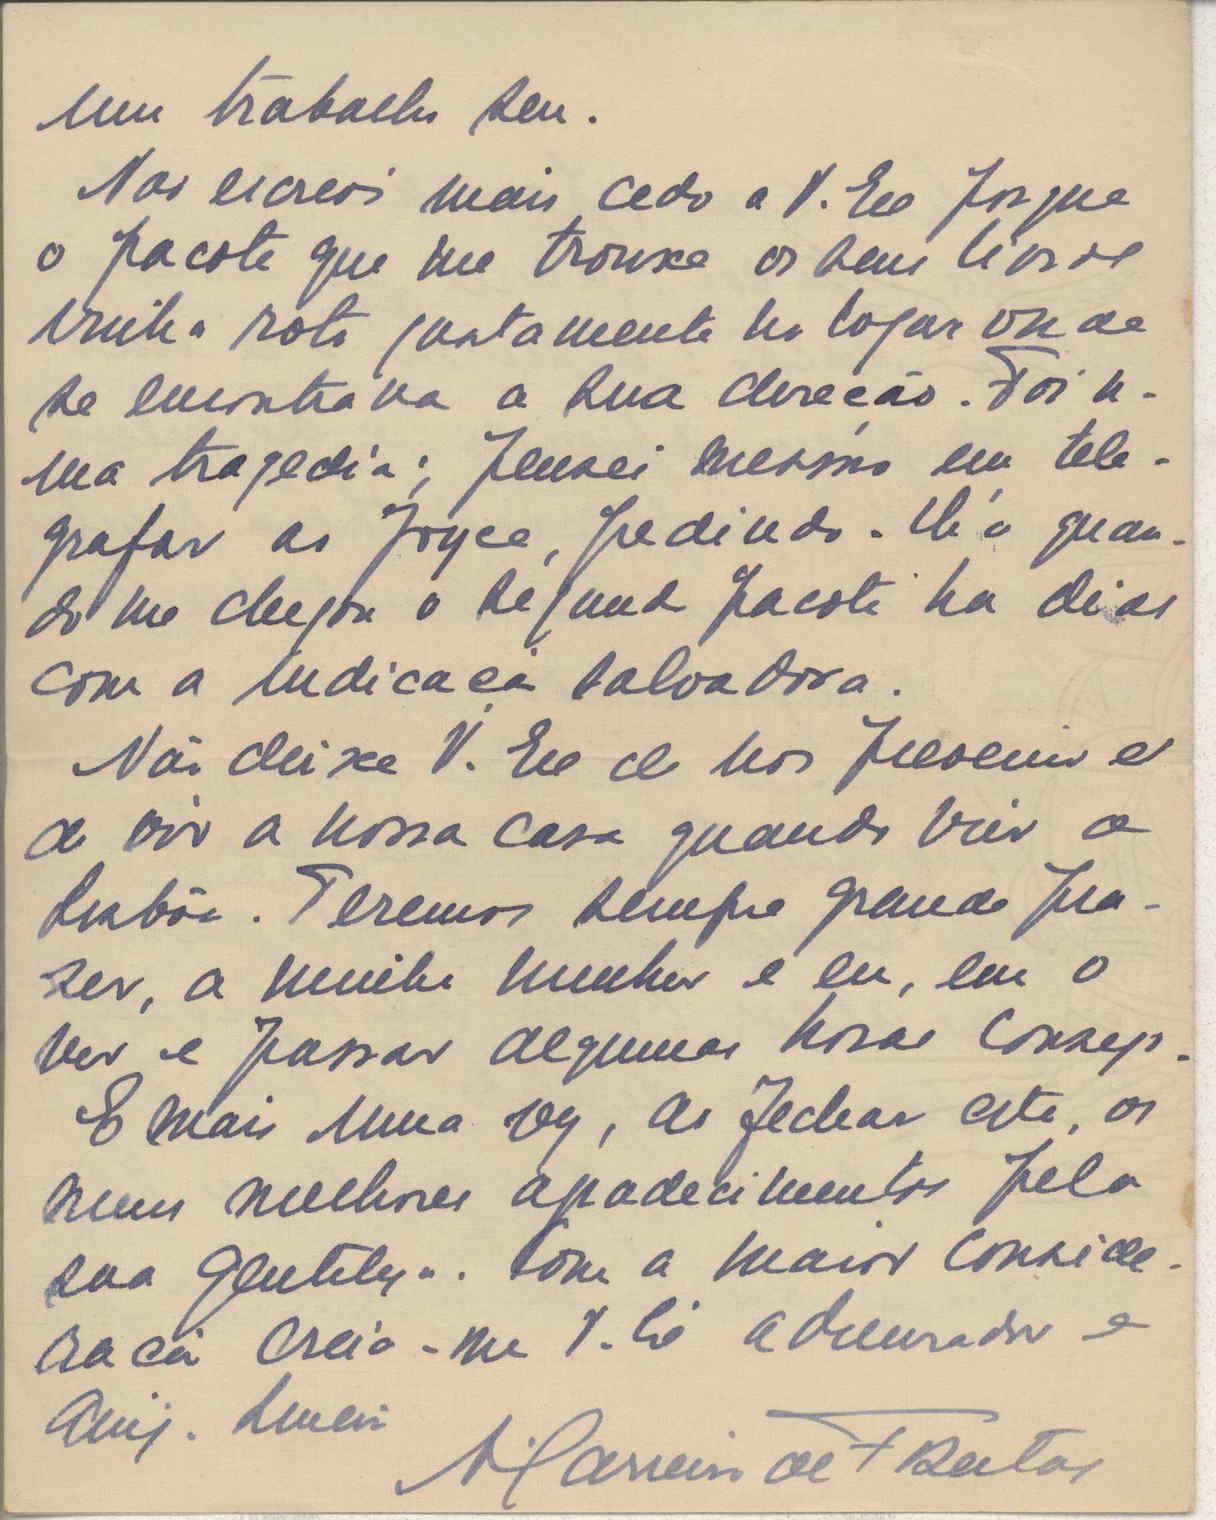 um trabalho seu.
Não escrevi mais cedo a V. Exª porque
o pacote que me trouxe os seus livros
vinha roto justamente no logar onde
se encontrava a sua direcão. Foi u-
ma tragedia; pensei mesmo em tele-
grafar ao Joyce, pedindo-lh'a quan-
do me chegou o segundo pacote ha dias
com a indicacão salvadora.
Não deixe V. Exª de nos prevenir e
de vir a nossa casa quando vier a
Lisbôa. Teremos sempre grande pra-
zer, a minha mulher e eu, em o
ver e passar algumas horas consigo.
E mais uma vez, ao fechar esta, os
meus melhores agradecimentos pela
sua gentileza. Com a maior conside-
racão creia-me V. Exª admirador e
amigº.
A. Carneiro de Freitas